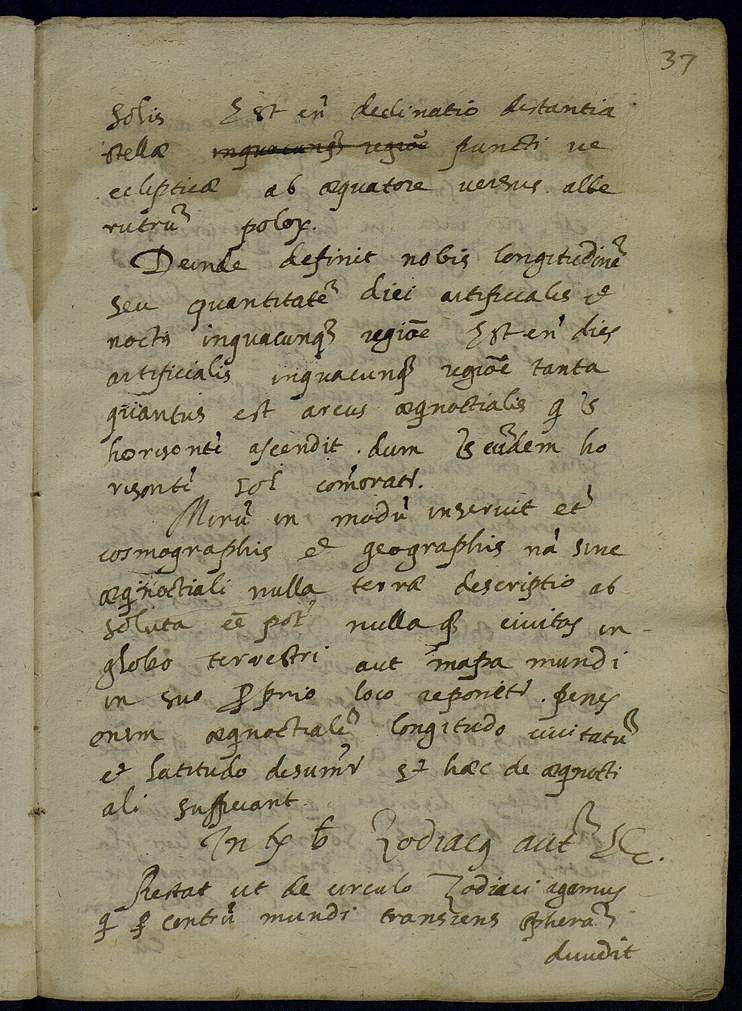 37
Solis Est en̄ declinatio distantia
stellæ inquacunqȝ regiōe puncti ue
eclipticæ ab æquatore versus alte
rutrū poloꝝ.
Deinde definit nobis longitudinē
seu quantitatē diei artificialis et
noctis inquacunqȝ regiōe Est en̄ dies
artificialis inquacunqȝ regiōe tanta
quantus est arcus æqnoctialis q
horisonti ascendit. dum eūdem ho
risonti sol com̄orat̄.
Mirū in modū inseruit et
cosmographis et geographis nā sine
æqnoctiali nulla terræ descriptio ab
soluta eē pot nulla qȝ ciuitas in-
globo terrestri aut mapa mundi
in suo ꝓprio loco reponit̄. penes
enim æqnoctialē longitudo ciuitatū
et latitudo desumit̄ et hæc de æqnocti
ali sufficiant.
In tx b Zodiacꝯ aut̄ &c.
Restat ut de circulo Zodiaci agamus
q ꝑ centrū mundi transiens spherā
diuidit